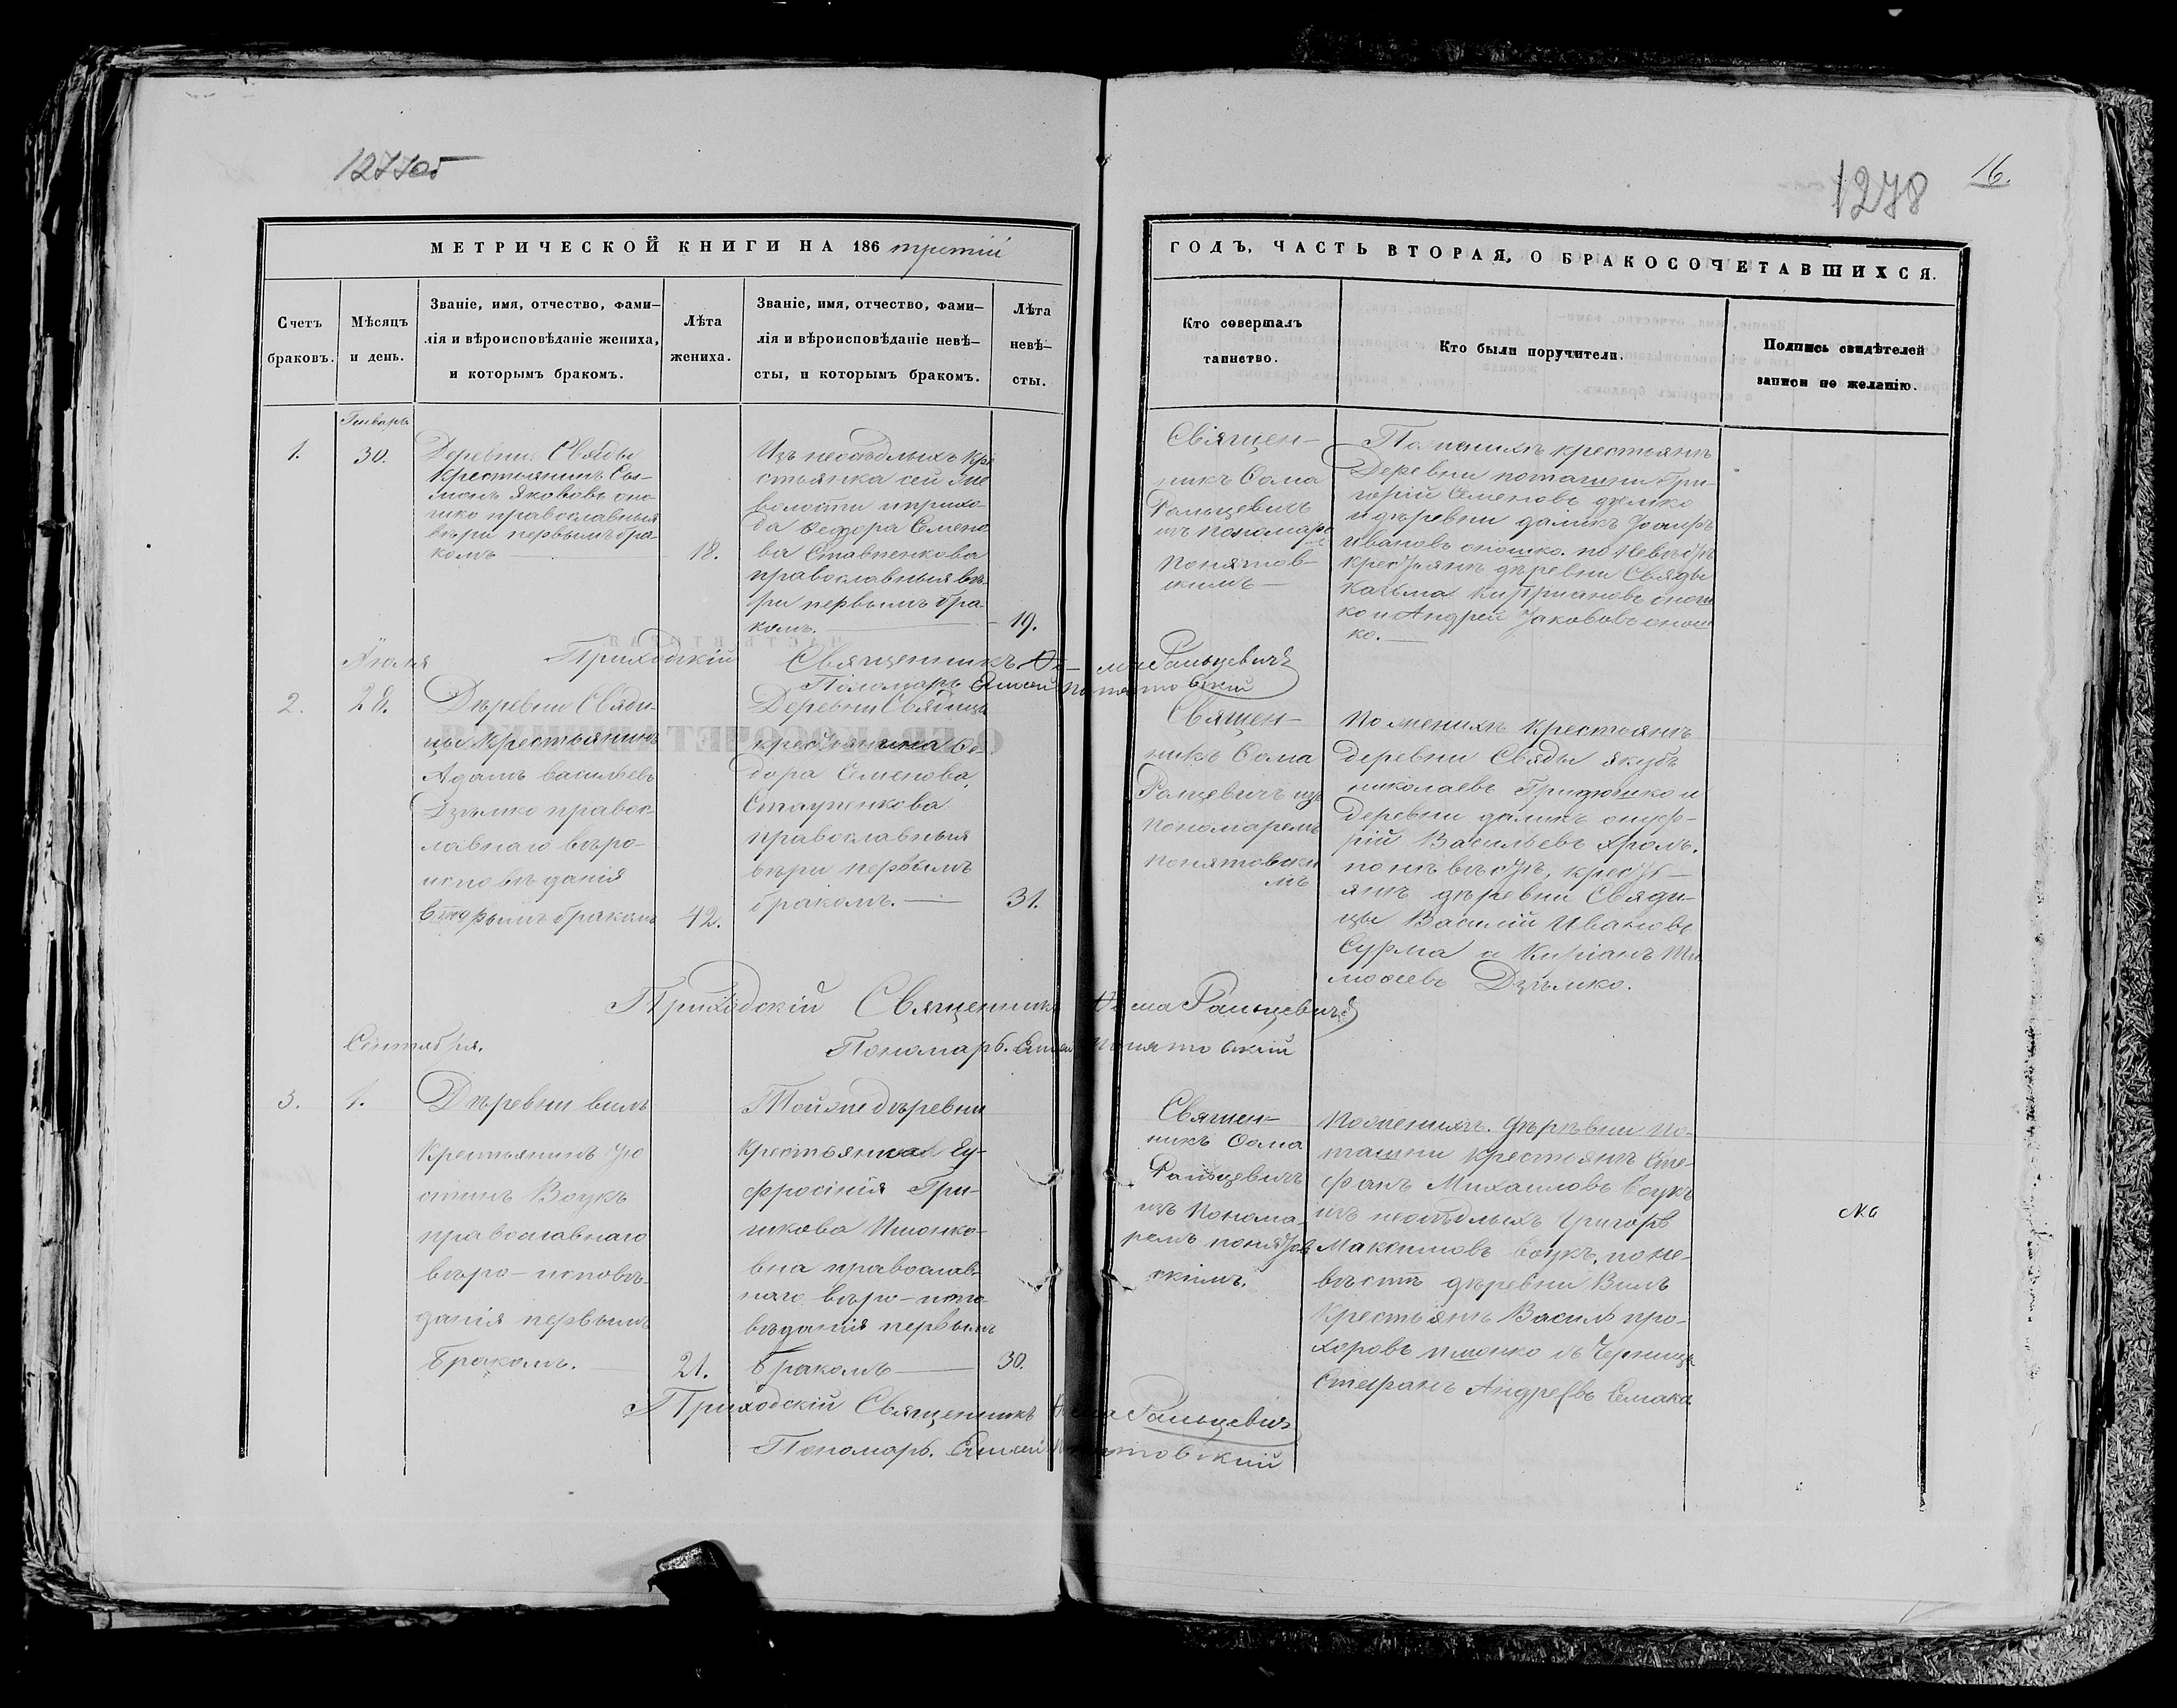 1277об
1278
16.
МЕТРИЧЕСКОЙ КНИГИ НА 186 третій
ГОДЪ, ЧАСТЬ ВТОРАЯ, О БРАКОСОЧЕТАВШИХСЯ.
Счетъ
браковъ.
Мѣсяцъ
и день.
Званіе, имя, отчество, фами-
лія и вѣроисповѣданіе жениха,
и которымъ бракомъ.
Лѣта
жениха.
Званіе, имя, отчество, фами-
лія и вѣроисповѣданіе невѣ-
сты, и которымъ бракомъ.
Лѣта
невѣ-
сты.
Кто совершалъ
таинство.
Кто были поручители.
Подпись свидѣтелей
записи по желанію.
Генваръ
1.
30.
Деревни Свяды
Крестьянинъ
Якововъ оно-
шко православныя
вѣри первымъ бра-
комъ
18.
Изъ неосѣдлыхъ кре
стьянка сей же
волости и прихо-
да Ѳеддора Семено
ва Ставпенкова
православныя вѣ-
ри первымъ бра-
комъ.
19.
Священ-
никъ Ѳома
Ральцевичъ
Понятов-
скимъ
По женихѣ крестьянѣ
Деревни поташни Гри-
горій Семеновъ
и дѣревни
Ивановъ оношко. по Невѣстѣ
крестьянѣ дѣревни Свяды
Казьма Киприановъ онош
ко и Андрей Якововъ онош
ко.
Приходскій Священникъ Ѳома Ральцевичъ
Пономарь Понятовский
Июля
2.
28.
Дѣревни Свяди-
цы Крестьянинъ
Адамъ Васильевъ
Дзѣмко правос-
лавнаго вѣро-
исповѣданія
вторымъ бракомъ
42.
Деревни Свядицы
крестьянина Ѳе
дора Семенова,
Стаупенкова
православныя
вѣри первымъ
бракомъ.
31.
Священ-
никъ Ѳома
Ралцевичъ изъ
пономаремъ
Понятовски
мъ
По женихѣ Крестьянѣ
деревни Свяды якубъ
николаевъ Гридюшко и
деревни онуф-
рій Васильевъ Хромъ.
по невѣстѣ, крест-
янѣ дѣревни Свяди-
цы Василій Ивановъ
Сурма и Киріанъ Ти
моѳеевъ Дзѣмко.
Приходскій Священникъ Ѳома Ральцевичъ
Пономарь. Понятовский
Сентября.
3.
1.
Дѣревни вилъ
Крестьянинъ Іу
стинъ Воукъ
православнаго
вѣро-исповѣ-
данія первымъ
бракомъ.
21.
Той же дѣревни
Крестьянка Еу-
фросінія Гри-
шкова Ишонко-
вна православ-
наго вѣро-испо
вѣданія первымъ
бракомъ
30.
Священ-
никъ Ѳома
Ральцевичъ
изъ Понома-
ремъ понятов
скімъ.
По женихѣ. Дѣрѣвни По-
ташни крестьянѣ Сте-
фанъ Михаиловъ Воукъ
изъ неосѣдлыхъ Григорь
Максимовъ Воукъ, по не-
вѣстѣ дѣревни Вилъ
Крестьянѣ Василь про-
хоровъ ишонко
Стефанъ Андреевъ Семака
Приходскій Священникъ Ѳома Ральцевичъ
Пономарь. Понятовский